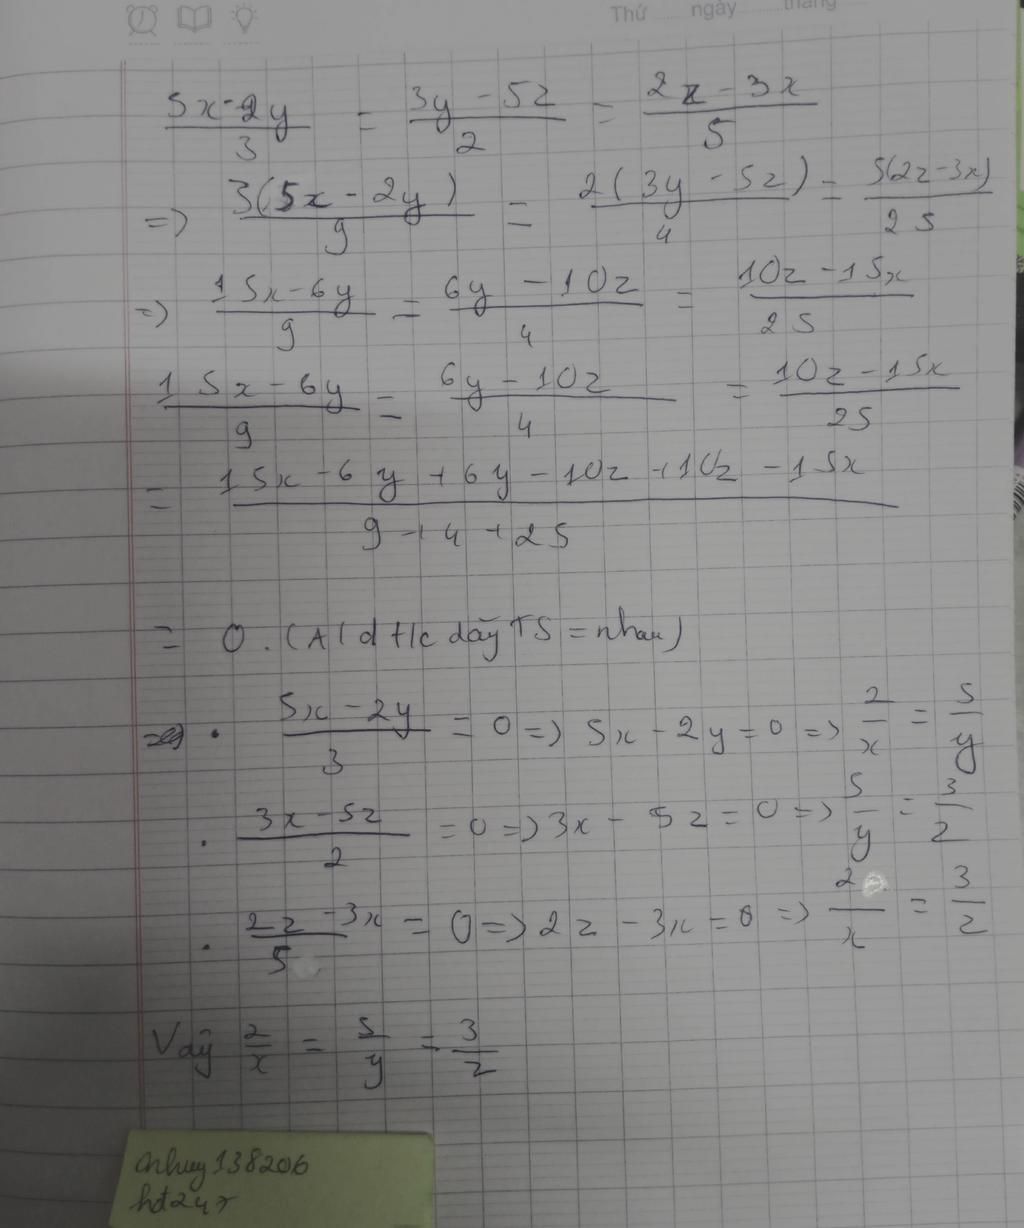 Thứ ngày tháng
5x-2y/3 = 3y-5z/2 = 2z-3x/5
=) 3(5x-2y)/9 = 2(3y-5z)/4 = 5(2z-3x)/25
=) 15x-6y/9 = 6y-10z/4 = 10z-15x/25
15x-6y/9 = 6y-10z/4 = 10z-15x/25
= 15x-6y+6y-10z+10z-15x/9+4+25
= 0. (A/d t/c dãy TS = nhau)
· 5x-2y/3 = 0 =) 5x-2y=0 =) 2/x = 5/y
· 3x-5z/2 = 0 =) 3x-5z=0 =) 5/y = 3/z
· 2z-3x/5 = 0 =) 2z-3x=0 =) 2/x = 3/z
Vậy 2/x = 5/y = 3/z
nhuy138206
hd247